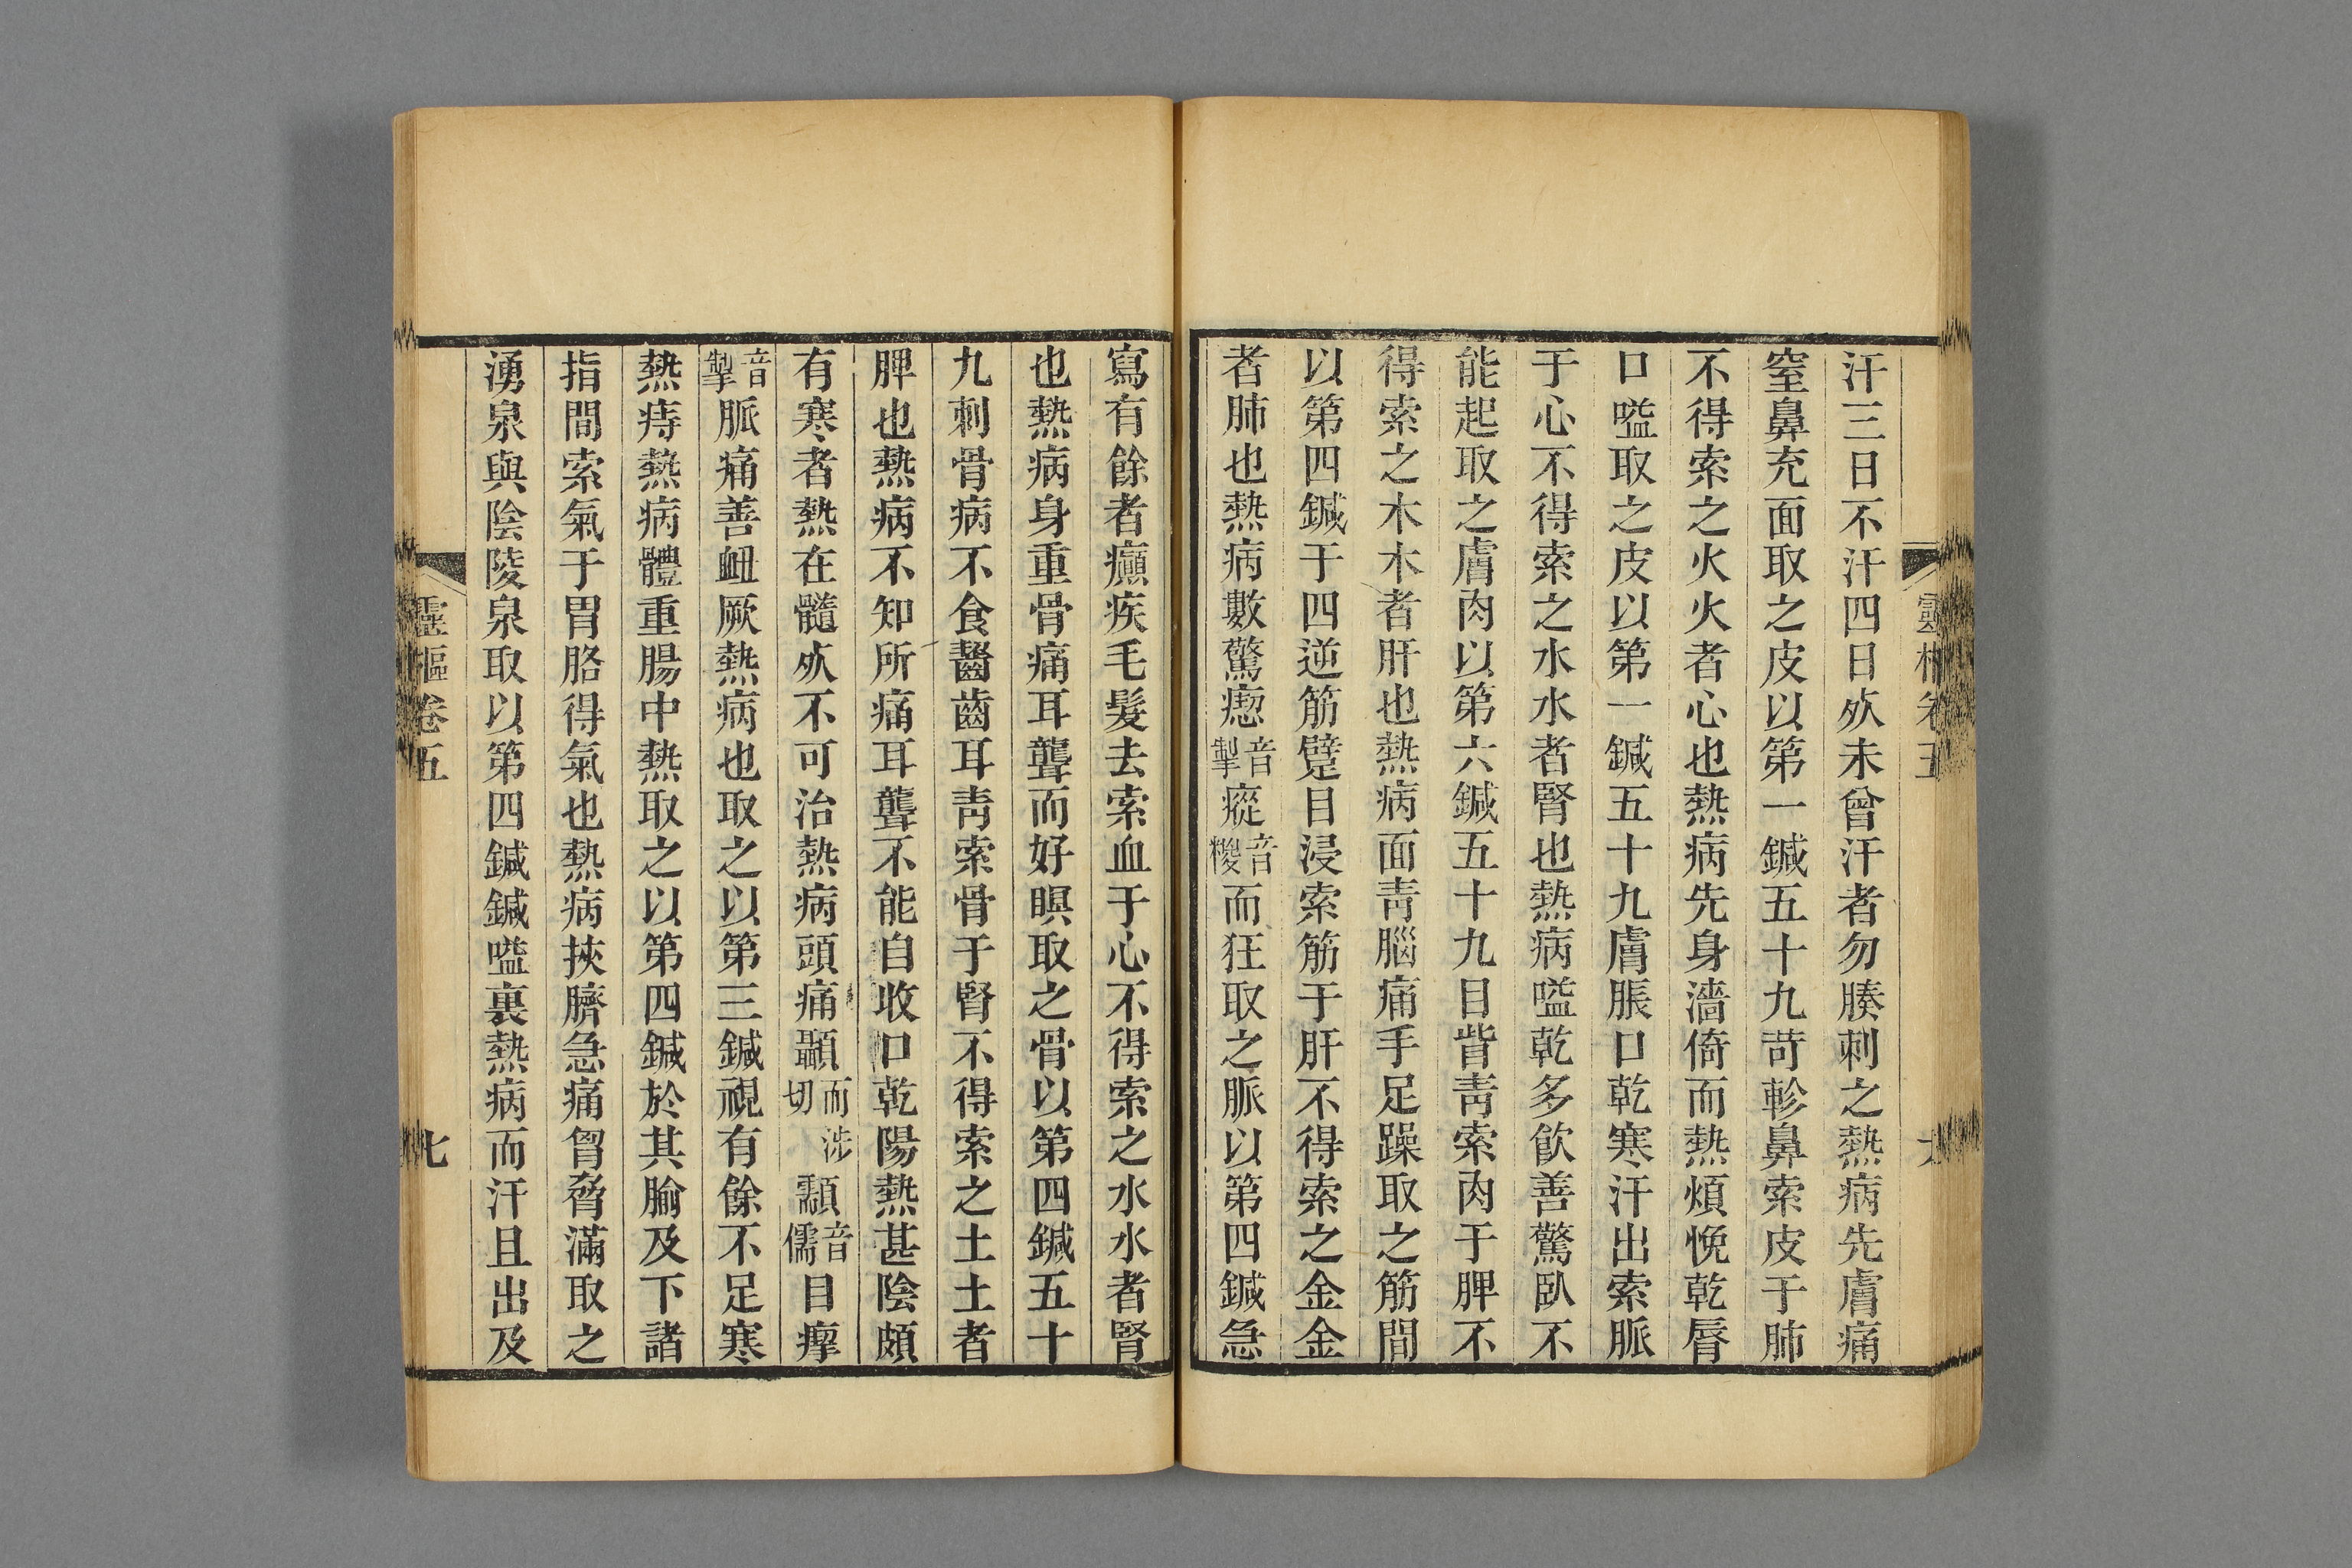 靈樞卷五
汗三日不汗四日𣦸未曾汗者勿腠刺之熱病先膚痛
窒鼻充面取之皮以第一鍼五十九苛軫鼻索皮于肺
不得索之火火者心也熱病先身濇倚而熱煩悗乾脣
口嗌取之皮以第一鍼五十九膚脹口乾寒汗出索脈
于心不得索之水水者腎也熱病嗌乾多飮善驚臥不
能起取之膚肉以第六鍼五十九目眥靑索肉于脾不
得索之木木者肝也熱病面靑腦痛手足躁取之筋間
以第四鍼于四逆筋躄目浸索筋于肝不得索之金金
者肺也熱病數驚瘛音掣瘲音糉而狂取之脈以第四鍼急
寫有餘者癲疾毛髮去索血于心不得索之水水者腎
也熱病身重骨痛耳聾而好瞑取之骨以第四鍼五十
九刺骨病不食齧齒耳靑索骨于腎不得索之土土者
脾也熱病不知所痛耳聾不能自收口乾陽熱甚陰頗
有寒者熱在髓𣦸不可治熱病頭痛顳而涉切顬音儒目㾕
音掣脈痛善衄厥熱病也取之以第三鍼視有餘不足寒
熱痔熱病體重腸中熱取之以第四鍼於其腧及下諸
指間索氣于胃胳得氣也熱病挾臍急痛胷脅滿取之
湧泉與陰陵泉取以第四鍼鍼嗌裏熱病而汗且出及
靈樞卷五
七